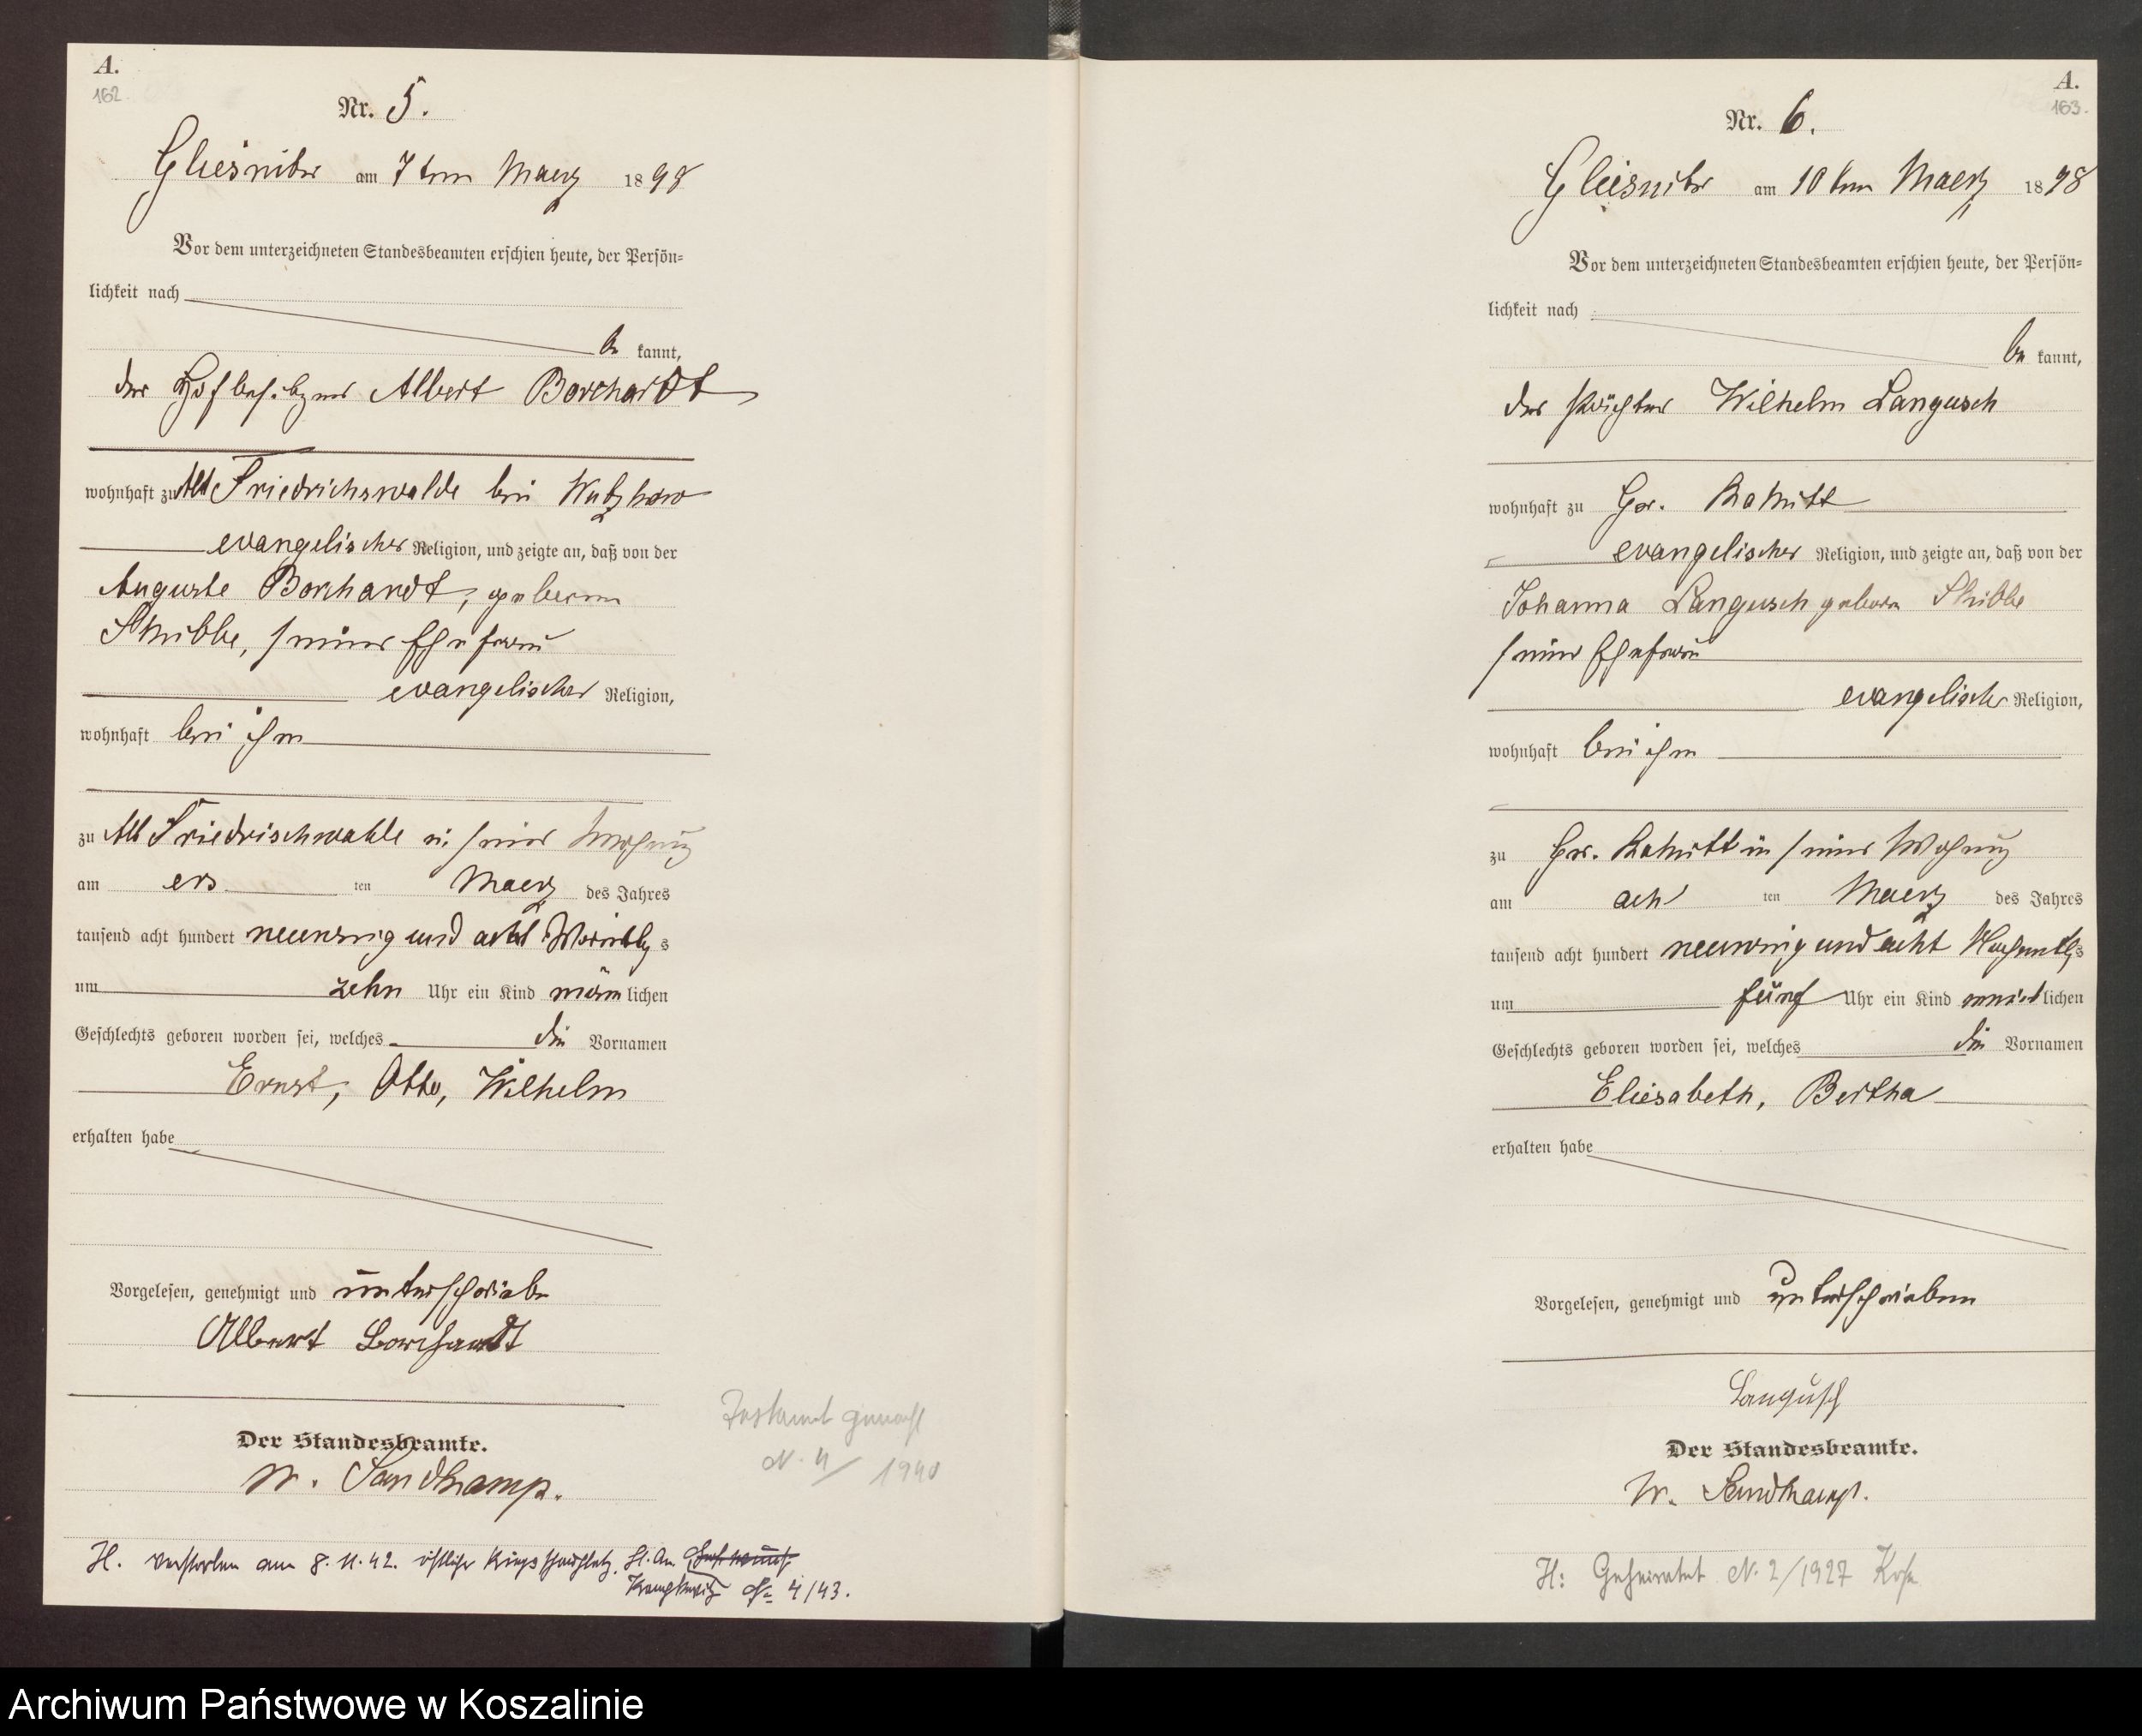 A.
162
Nr. 5.
Gliesnitz am 7ten Maerz 1898
Vor dem unterzeichneten Standesbeamten erschien heute, der Persön=
lichkeit nach
be kannt,
der Hofbesitzer Albert Borchardt
wohnhaft zu Alt Friedrichswalde bei
evangelischer Religion, und zeigte an, daß von der
Auguste Borchardt, geborene
Skibbe, seiner Ehefrau
evangelischer Religion,
wohnhaft bei ihm
zu Alt Friedrischwalde in seiner Wohnung
am ers ten Maerz des Jahres
tausend acht hundert neunzig und acht Vormittags
um zehn Uhr ein Kind män lichen
Geschlechts geboren worden sei, welches die Vornamen
Ernst, Otto, Wilhelm
erhalten habe
Vorgelesen, genehmigt und unterschrieben
Albert Borchardt
Der Standesbeamte.
W. Sandkamp.
Testament gemacht
N. 4/1940
H. verstorben am 8.11.42. östlicher Kriegsschauplatz. St. Am.
№ 4/43.
A.
163.
Nr. 6.
Gliesnitz am 10ten Maerz 1898
Vor dem unterzeichneten Standesbeamten erschien heute, der Persön=
lichkeit nach
be kannt,
der Pächter Wilhelm Langusch
wohnhaft zu Gr. Rakitt
evangelischer Religion, und zeigte an, daß von der
Johanna Langusch geborn Skibbe
seiner Ehefrau
evangelischer Religion,
wohnhaft bei ihm
zu Gr. Rakitt in seiner Wohung
am ach ten Maerz des Jahres
tausend acht hundert neunzig und acht Nachmittags
um fünf Uhr ein Kind lichen
Geschlechts geboren worden sei, welches die Vornamen
Eliesabeth, Bertha
erhalten habe
Vorgelesen, genehmigt und unterschrieben
Langusch
Der Standesbeamte.
W. Sandkamp.
H: Geheiratet N. 2/1927
Archiwum Państwowe w Koszalinie